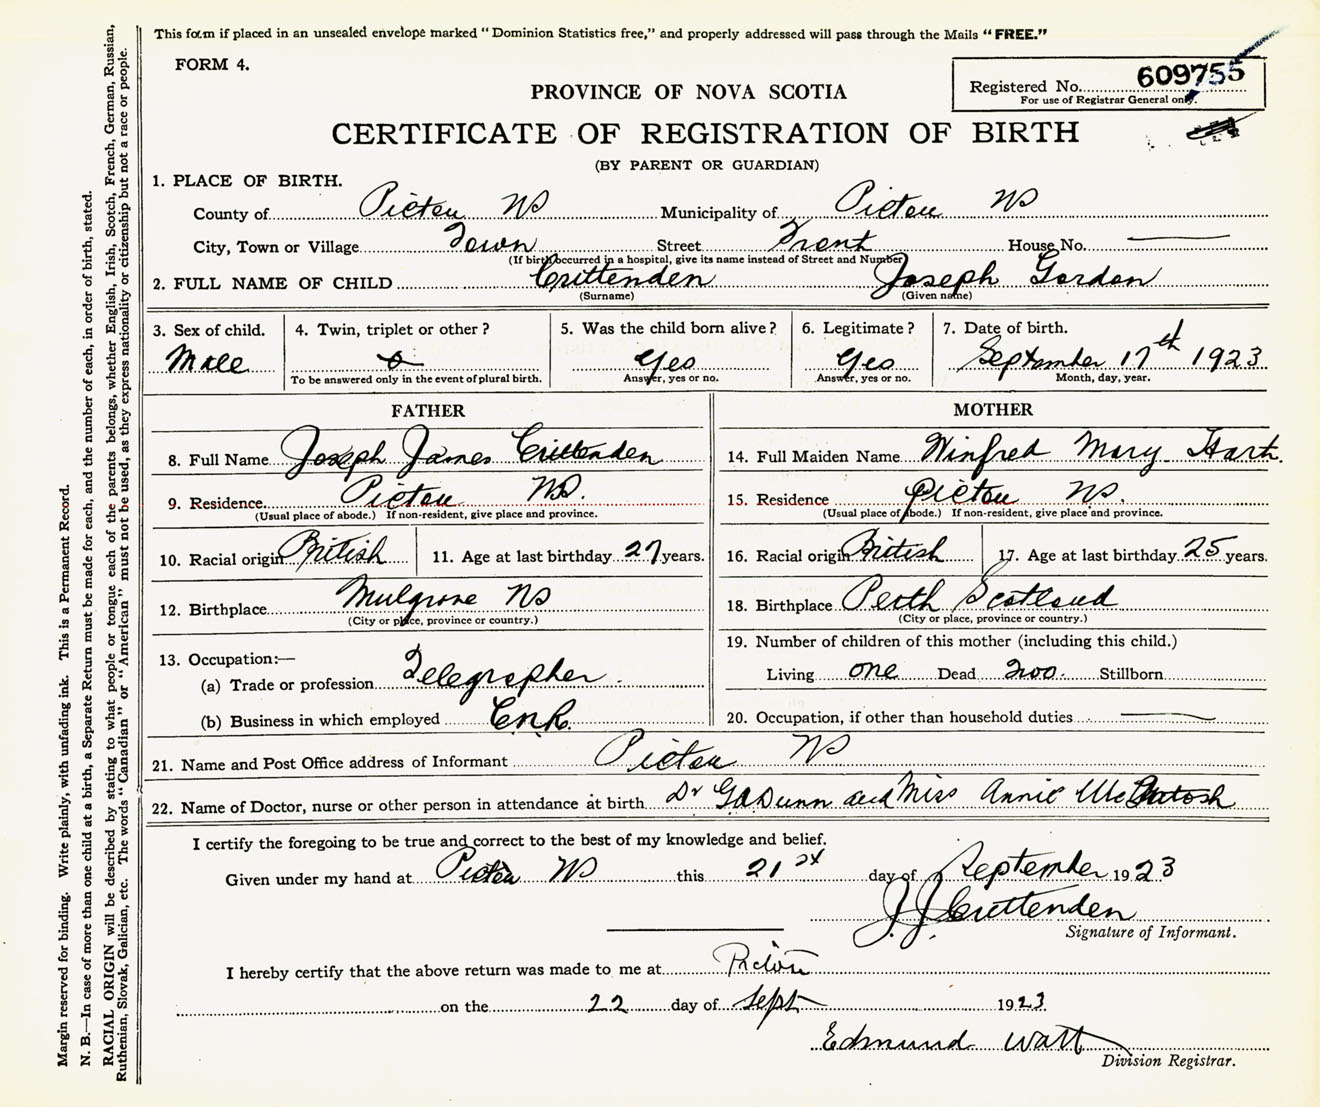 This form if placed in an unsealed envelope marked "Dominion Statistics free," and properly addressed will pass through the Mails "FREE."
FORM 4.
Registered No. 609755
For use of Registrar General only.
PROVINCE OF NOVA SCOTIA
CERTIFICATE OF REGISTRATION OF BIRTH
(BY PARENT OR GUARDIAN)
1. PLACE OF BIRTH.
County of Pictou NS Municipality of Pictou NS
City, Town or Village Town Street Front House No.
(If birth occurred in a hospital, give its name instead of Street and Number)
2. FULL NAME OF CHILD Crittenden Joseph Gordon
(Surname) (Given name)
3. Sex of child. 4. Twin, triplet or other? 5. Was the child born alive? 6. Legitimate? 7. Date of birth.
Male o Yes Yes September 17th 1923
To be answered only in the event of plural birth. Answer, yes or no. Answer, yes or no. Month, day, year.
FATHER
8. Full Name Joseph James Crittenden
9. Residence Pictou NS.
(Usual place of abode.) If non-resident, give place and province.
10. Racial origin British 11. Age at last birthday 27 years.
12. Birthplace Mulgrave NS
(City or place, province or country.)
13. Occupation:—
(a) Trade or profession Telegrapher.
(b) Business in which employed C.N.R.
MOTHER
14. Full Maiden Name Winfred Mary Hart.
15. Residence Pictou NS.
(Usual place of abode.) If non-resident, give place and province.
16. Racial origin British 17. Age at last birthday 25 years.
18. Birthplace Perth Scotland
(City or place, province or country.)
19. Number of children of this mother (including this child.)
Living one Dead Two. Stillborn
20. Occupation, if other than household duties
21. Name and Post Office address of Informant Pictou NS
22. Name of Doctor, nurse or other person in attendance at birth Dr GADunn and Miss Annie McIntosh
I certify the foregoing to be true and correct to the best of my knowledge and belief.
Given under my hand at Pictou NS this 21st day of September 1923
J.J. Crittenden
Signature of Informant.
I hereby certify that the above return was made to me at Pictou
on the 22 day of Sept 1923
Edmund Watt
Division Registrar.
Margin reserved for binding. Write plainly, with unfading ink. This is a Permanent Record.
N. B.—In case of more than one child at a birth, a Separate Return must be made for each, and the number of each, in order of birth, stated.
RACIAL ORIGIN will be described by stating to what people or tongue each of the parents belongs, whether English, Irish, Scotch, French, German, Russian,
Ruthenian, Slovak, Galician, etc. The words "Canadian" or "American" must not be used, as they express nationality or citizenship but not a race or people.